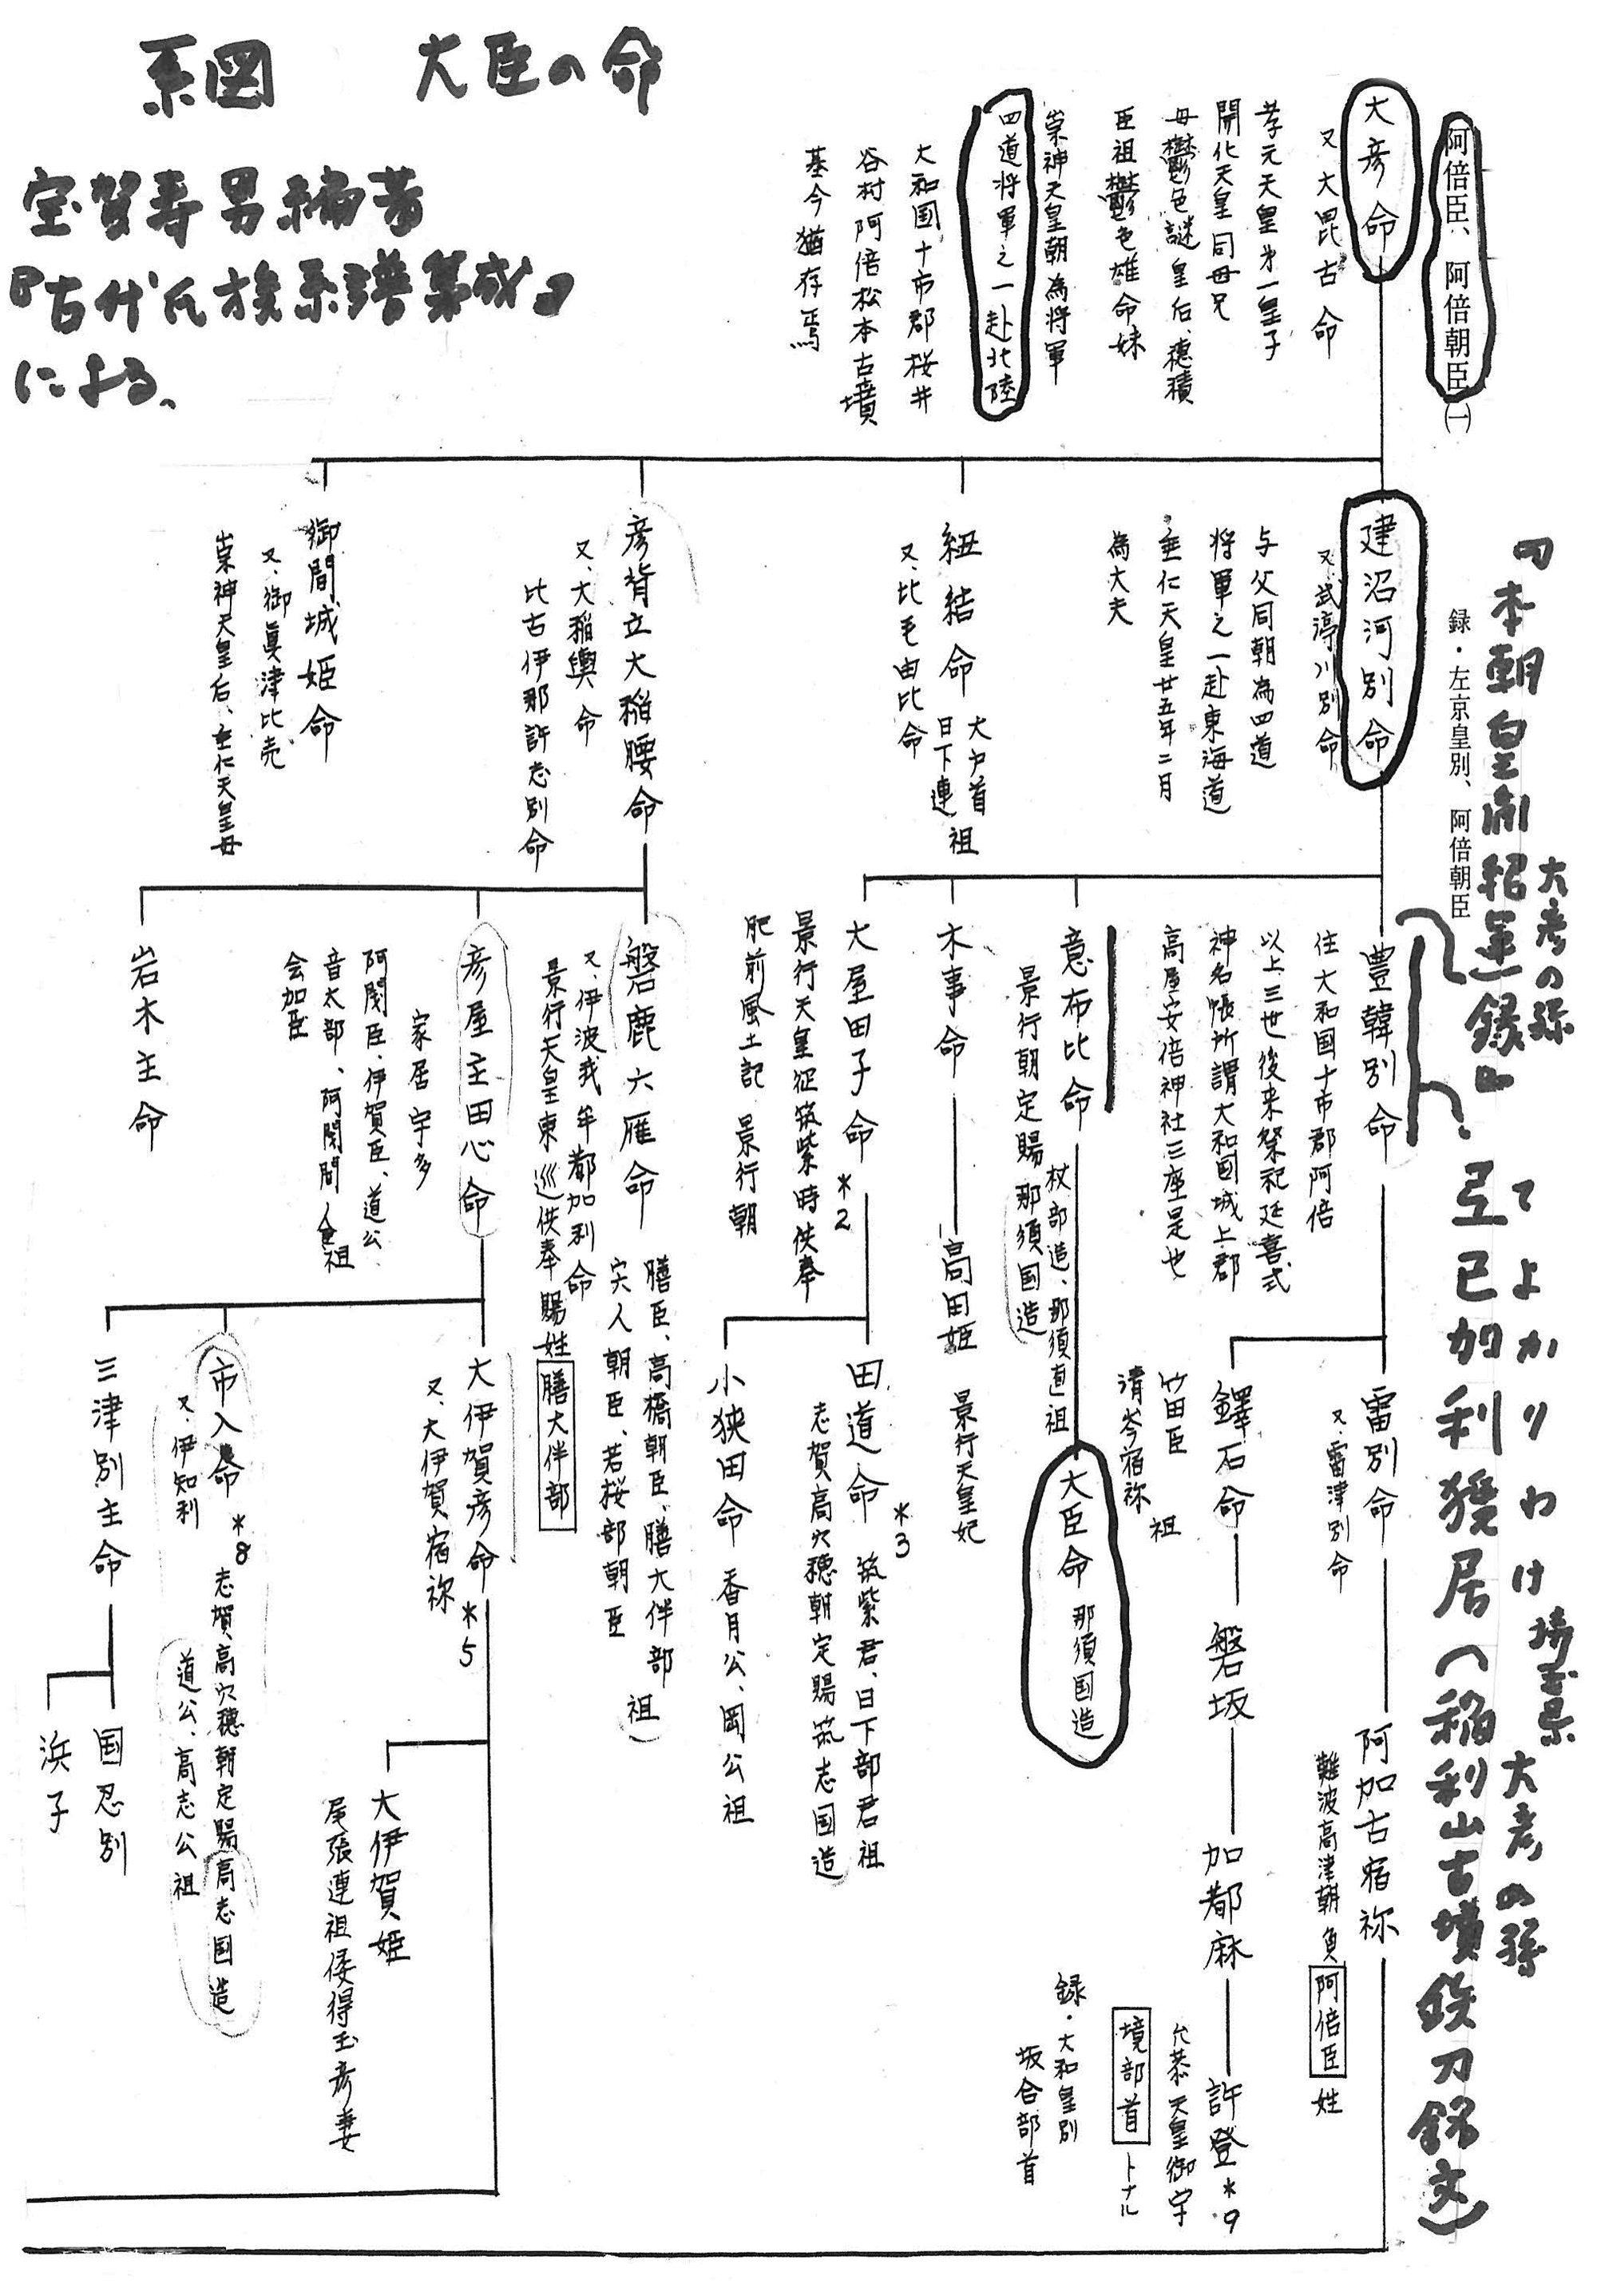 系図　大臣の命
宝賀寿男編著
『古代氏族系譜集成』
による、
阿倍臣、阿倍朝臣(一)
録・左京皇別、阿倍朝臣
大彦命
又大毘古命
孝元天皇第一皇子
開化天皇同母兄
母欝色謎皇后、穂積
臣祖欝色雄命妹
崇神天皇朝為将軍
四道将軍之一赴北陸
大和国十市郡桜井
谷村阿倍松本古墳
基今猶存焉
建沼河別命
又、武渟川別命
与父同朝為四道
将軍之一赴東海道
垂仁天皇廿五年二月
為大夫
紐結命
大戸首
日下連
祖
又、比毛由比命
彦背立大稲腰命
又、大稲輿命
比古伊那許志別命
御間城姫命
又、御眞津比売
崇神天皇后、垂仁天皇母
『本朝皇胤紹運録』
大彦の孫
豊韓別命
住大和国十市郡阿倍
以上三世後来祭祀延喜式
神名帳所謂大和国城上郡
高屋安倍神社三座是也
意布比命
景行朝定賜那須国造
杖部造、那須直祖
木事命
高田姫　景行天皇妃
大屋田子命 *2
景行天皇征筑紫時供奉
肥前風土記　景行朝
磐鹿六雁命
又、伊波我牟都加利命
景行天皇東巡供奉賜姓膳大伴部
膳臣、高橋朝臣、膳大伴部
宍人朝臣、若桜部朝臣
祖
彦屋主田心命
家居宇多
阿閇臣、伊賀臣、道公
音太部、阿閇間人祖
会加臣
岩木主命
てよかりわけ　埼玉県　大彦の孫
弖已加利獲居(稲利山古墳鉄刀銘文)
雷別命
又、雷津別命
阿加古宿祢
難波高津朝負阿倍臣姓
鐸石命
竹田臣
清岑宿祢
祖
磐坂
加都麻
許登 *9
允恭天皇御宇
境部首トナル
録・大和皇別
坂合部首
大臣命　那須国造
田道命 *3
筑紫君、日下部君祖
志賀高穴穂朝定賜筑志国造
小狭田命　香月公、岡公祖
大伊賀彦命 *5
又、大伊賀宿祢
大伊賀姫
尾張連祖倭得玉彦妻
市入命 *8
又、伊知利
志賀高穴穂朝定賜高志国造
道公、高志公祖
三津別主命
国忍別
浜子